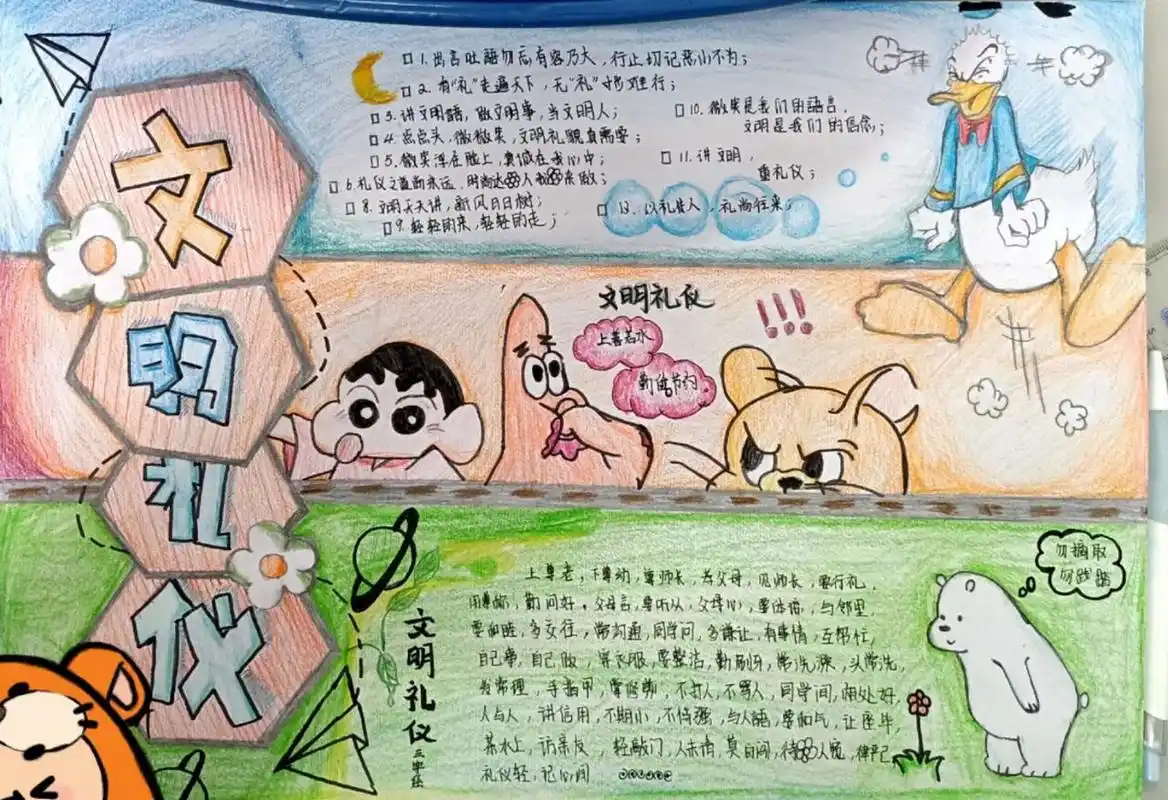 文
明
礼
仪
□1.出言吐語勿忘有容乃大，行止切记恶小不为；
□2.有“礼”走遍天下，无“礼”寸步难行；
□3.讲文明語，做文明事，当文明人；
□4.点点头，微微笑，文明礼貌真需要；
□5.微笑浮在脸上，真诚在我心中；
□6.礼仪之
□8.文明天天讲，新风日日树；
□9.轻轻的来，轻轻的走；
□10.微笑是我们的語言，
文明是我们的信念；
□11.讲文明，
重礼仪；
□12.以礼待人，礼尚往来；
文明礼仪
!!!
上善若水
勤俭节约
勿摘取
勿践踏
文明礼仪三字经
上尊老，下尊幼，尊师长，孝父母，见师长，要行礼，
勤问好，父母言，要听从，父母心，要体谅，与邻里
要和睦，多交往，常沟通，同学间，多谦让，有事情，互帮忙，
自己事，自己做，穿衣服，要整洁，勤刷牙，常洗澡，头常洗，
发常理，手指甲，常修剪，不打人，不骂人，同学间，相处好，
人与人，讲信用，不欺小，不恃强，与人語，要和气，让座牛，
访亲友，轻敲门，人未请，莫
礼仪轻，记心间